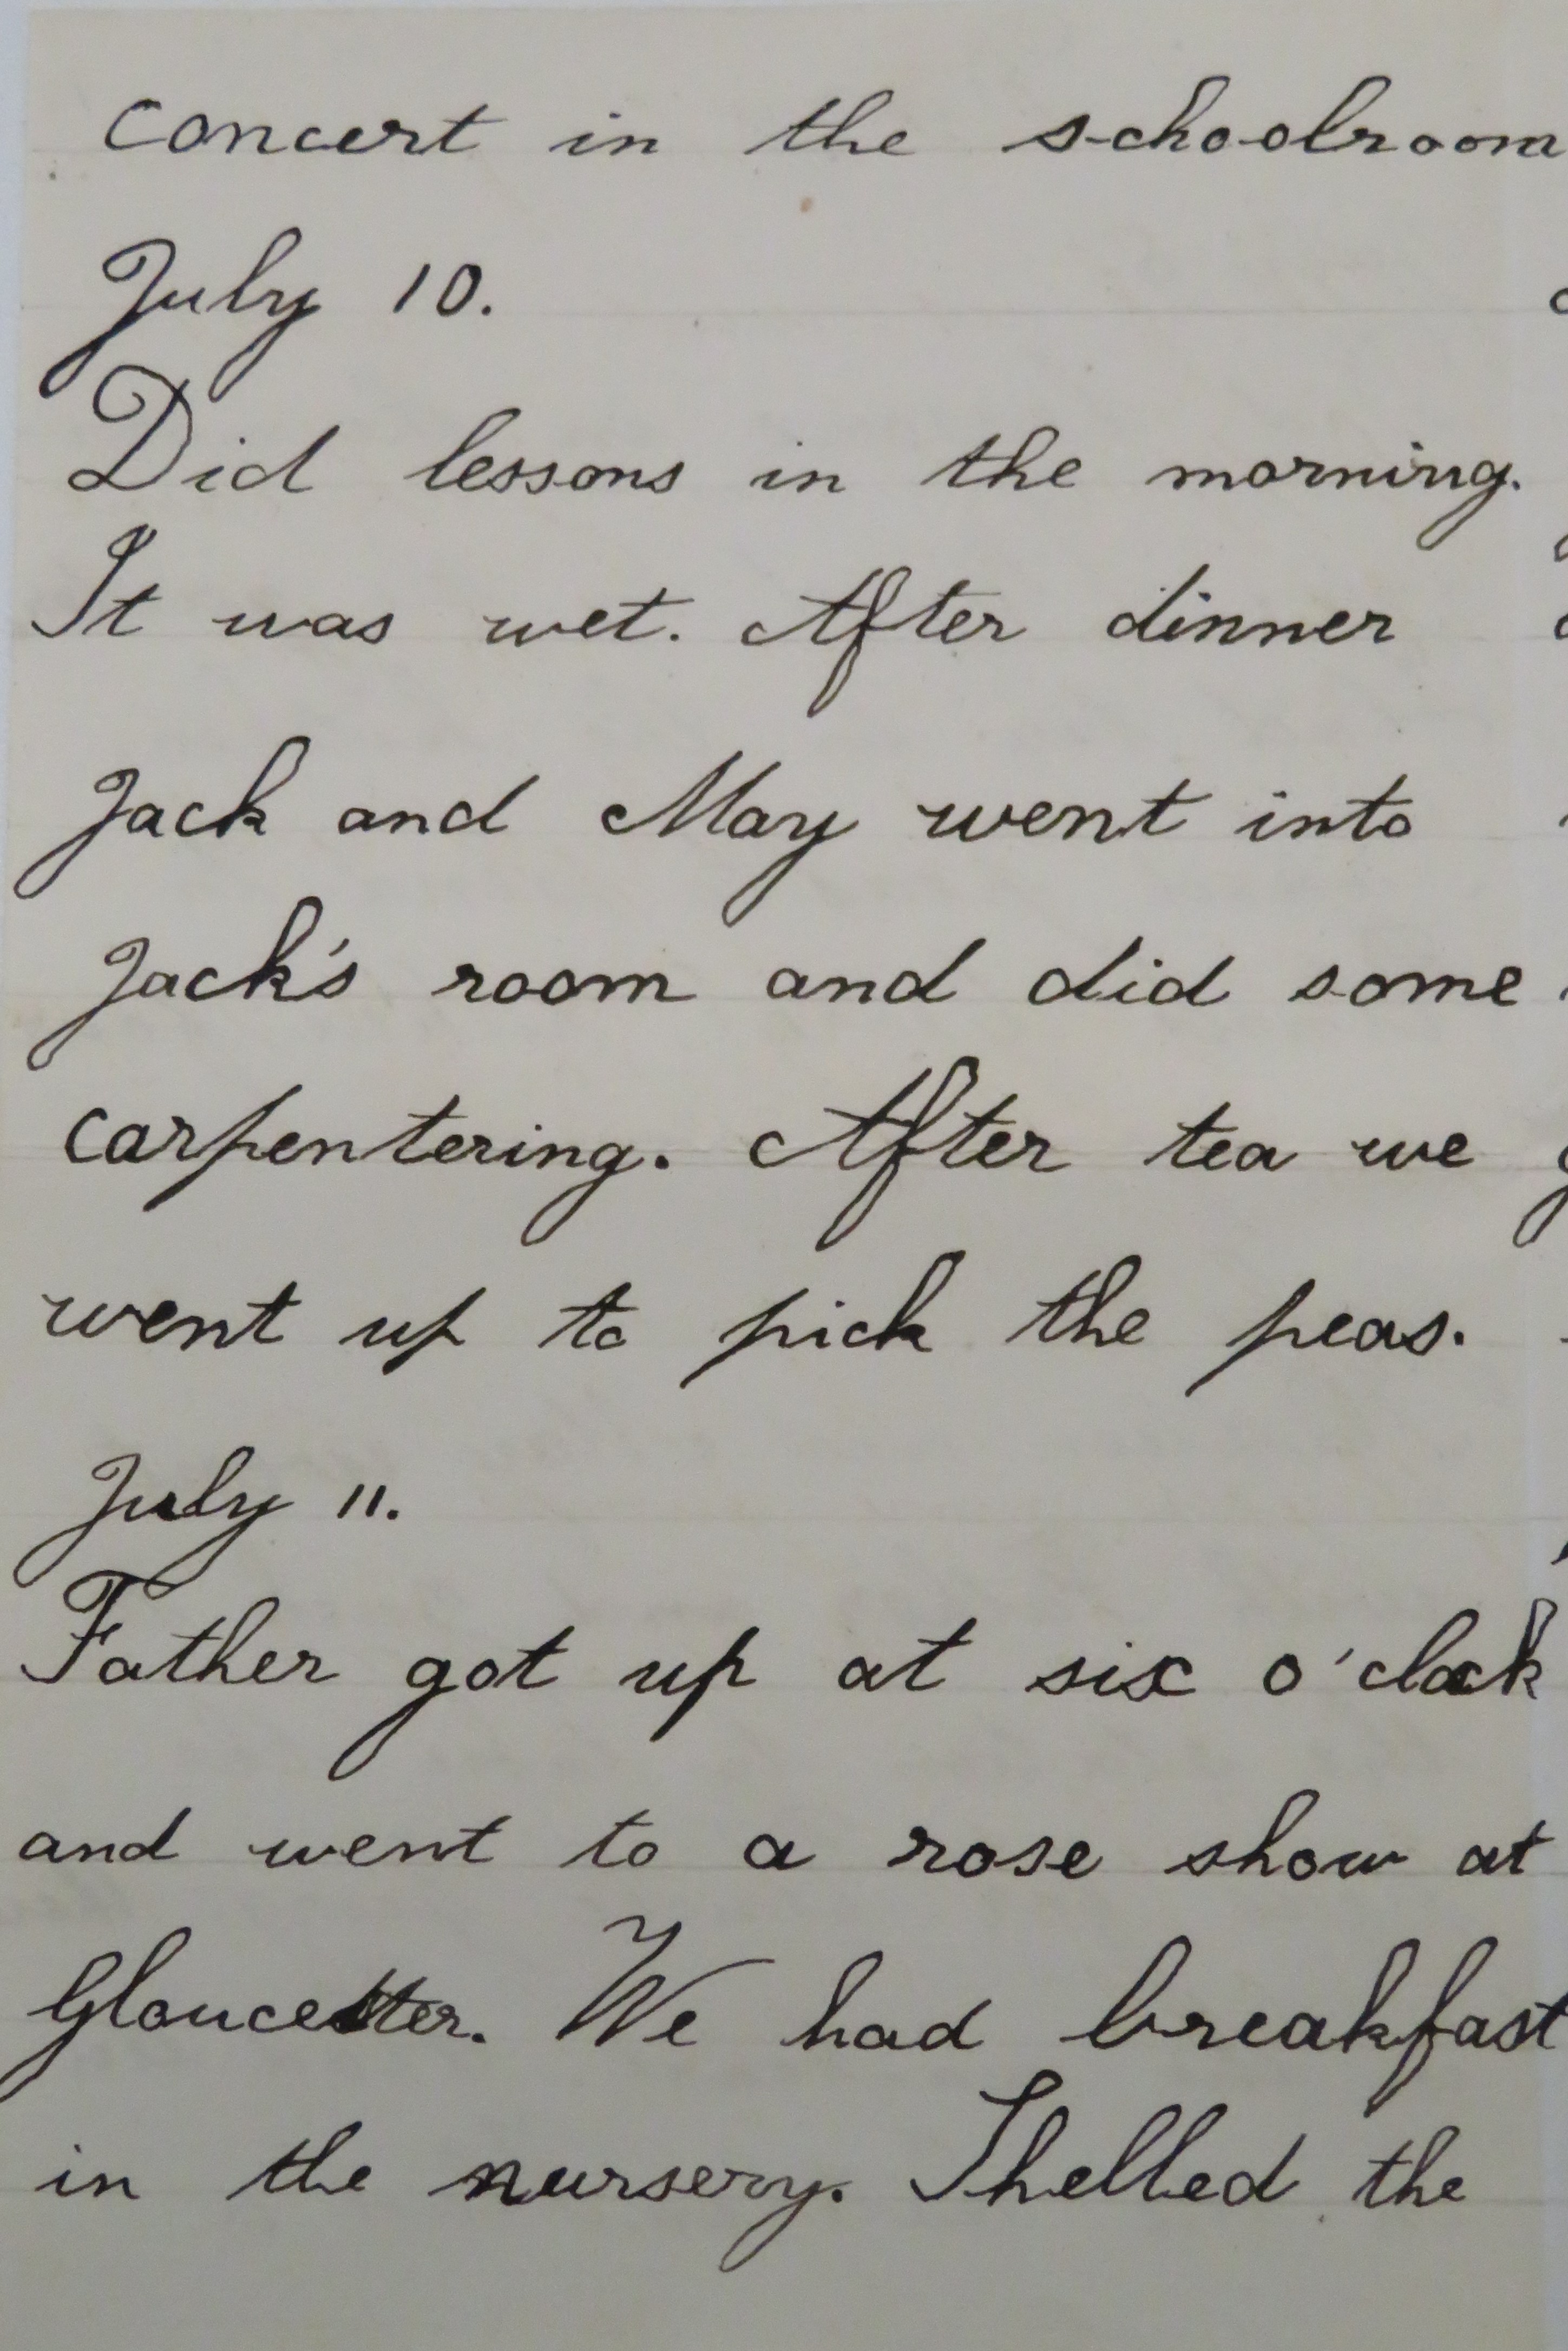 concert in the schoolroom
July 10.
Did lessons in the morning.
It was wet. After dinner
Jack and May went into
Jack's room and did some
carpentering. After tea we
went up to pick the peas.
July 11.
Father got up at six o'clock
and went to a rose show at
Gloucester. We had breakfast
in the nursery. Shelled the